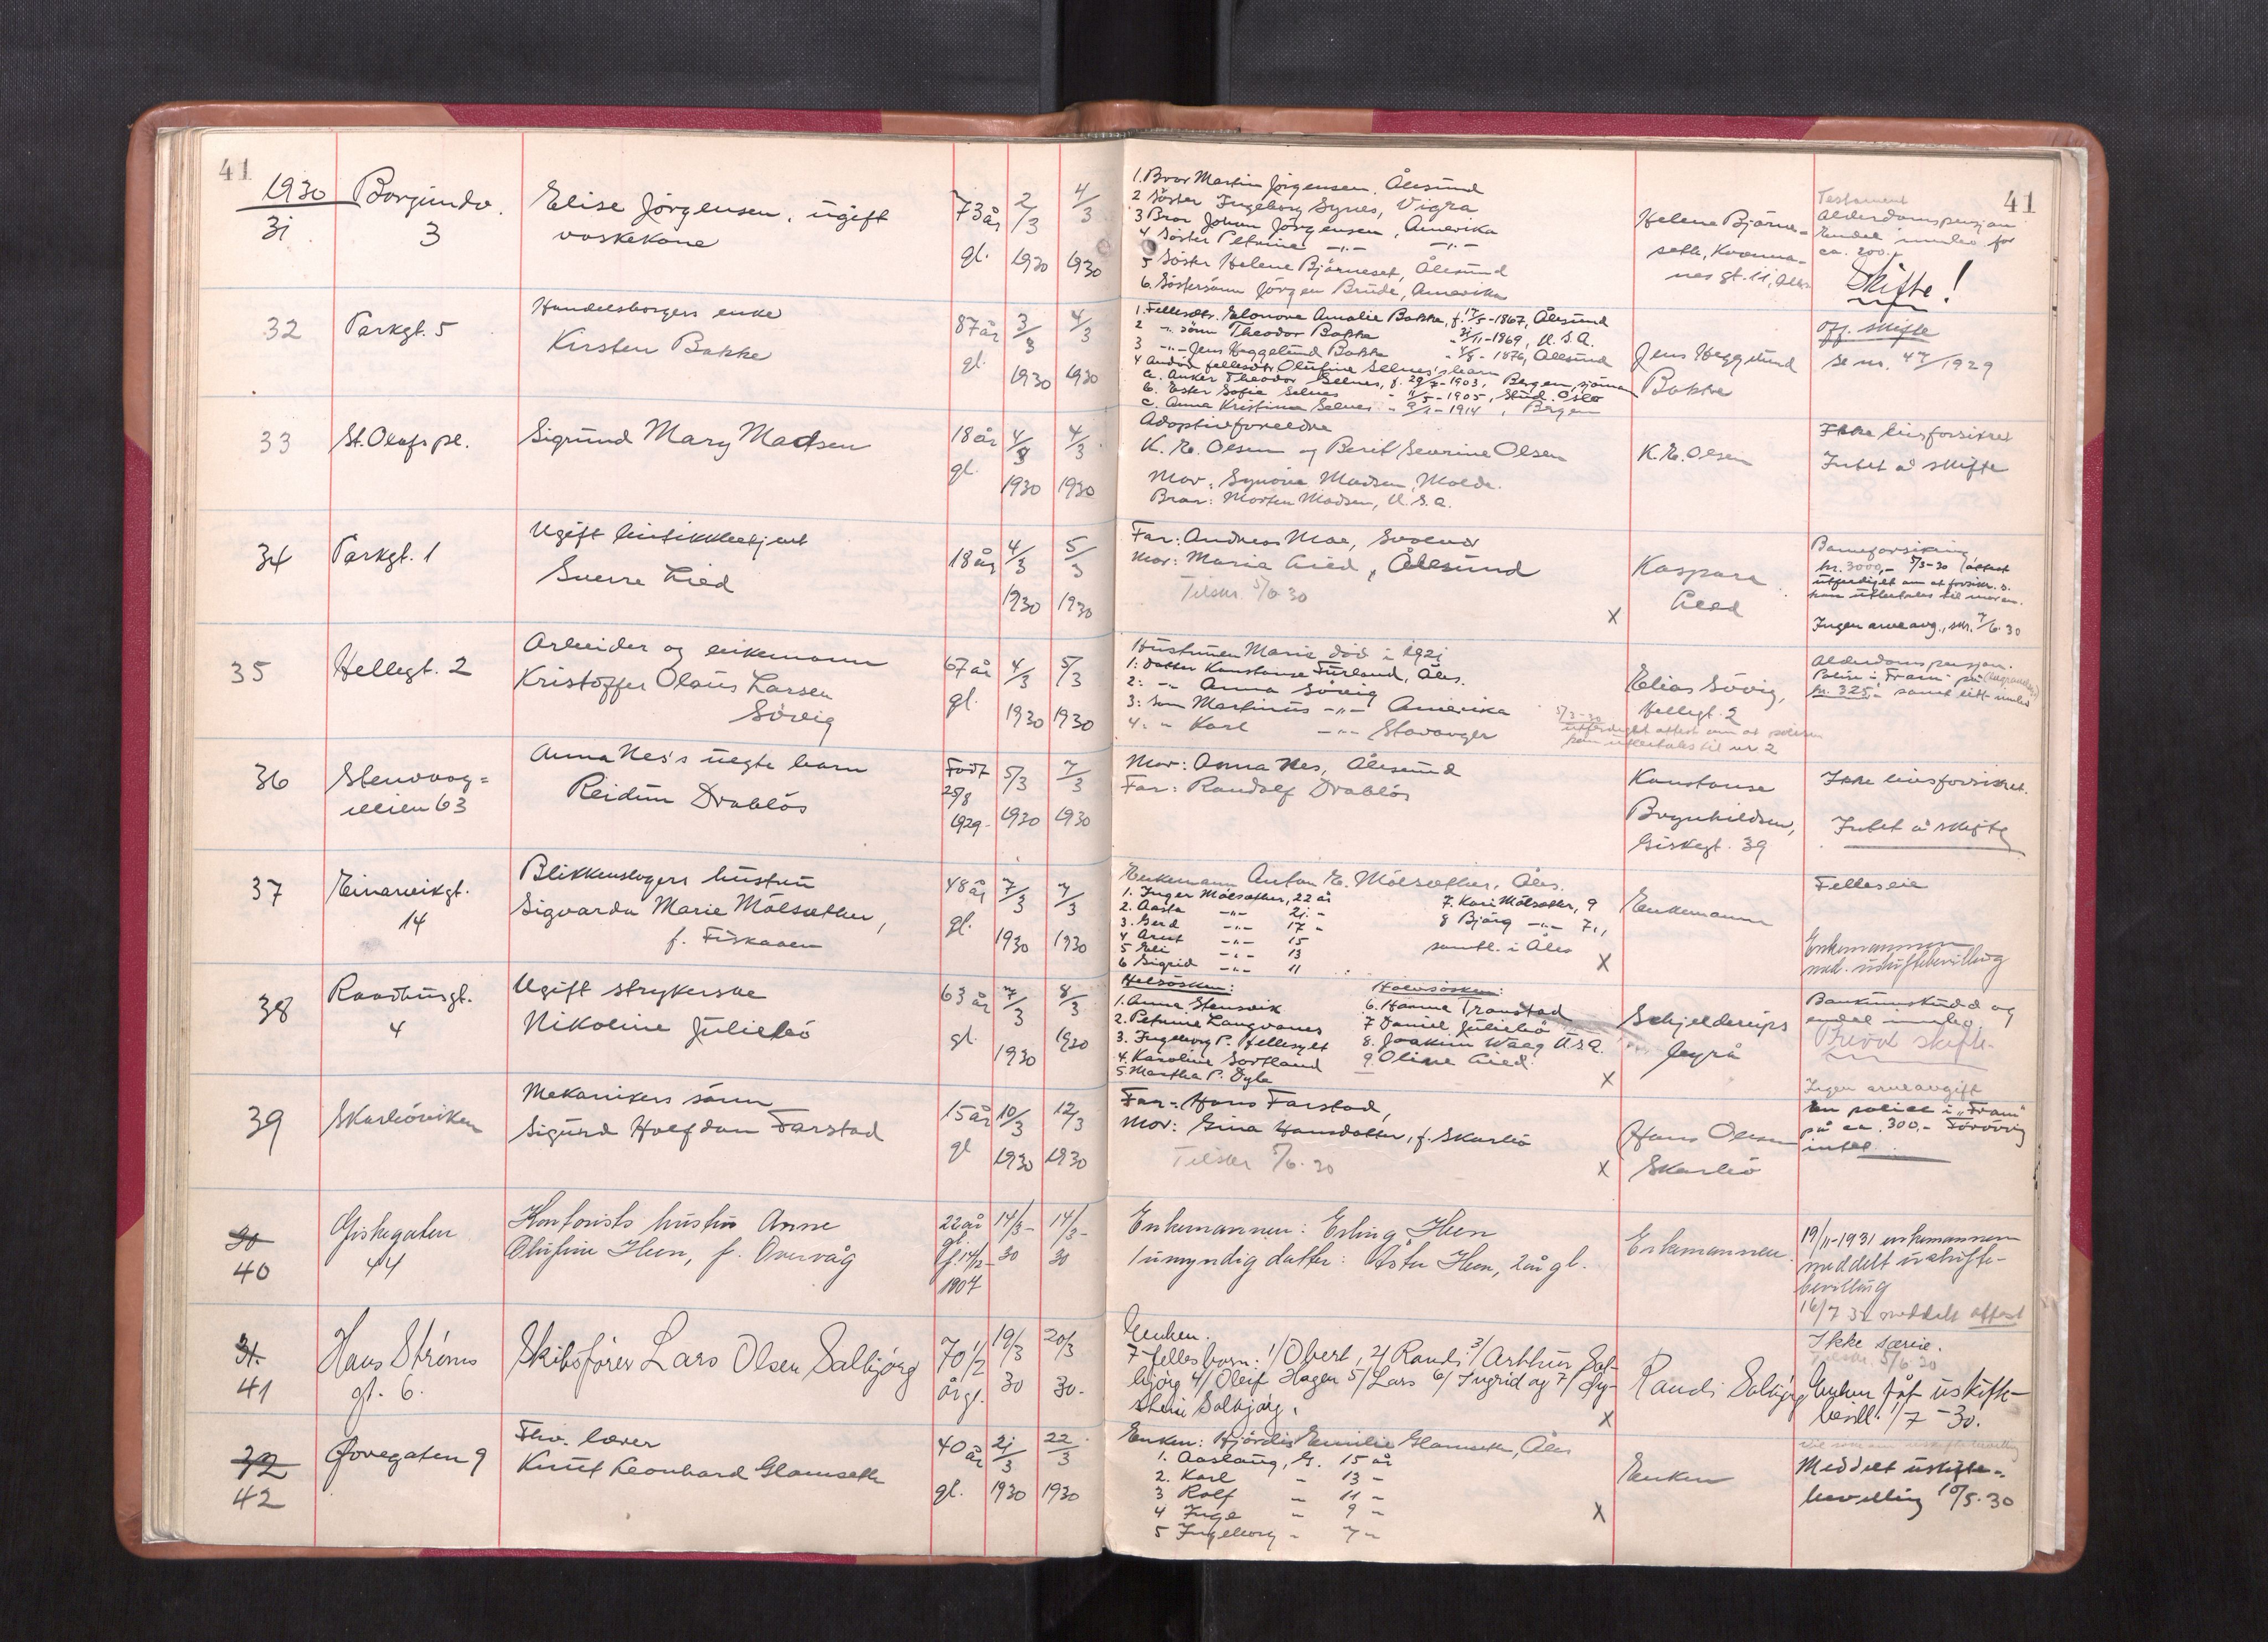 41
41
1930
31
Borgundv.
3
Elise Jørgensen, ugift
vaskekone
73 år
gl.
2/3
1930
4/3
1930
1. Bror Martin Jørgensen, Ålesund
2 Søster Ingeborg Synes, Vigra
3 Bror Johan Jørgensen, Amerika
4 Søster Petrine -"- -"-
5 Søster Helene Bjørneset, Ålesund
6. Søstersønn Jørgen Brude, Amerika
Helene Bjørne-
seth, Kvenna-
nes gt. 11, Åles
Testament
Alderdomspensjon
Endel innbo for
ca. 200.-
Skifte!
32
Parkgt. 5
Handelsborgers enke
Kirsten Bakke
87 år
gl.
3/3
1930
4/3
1930
1. Fellesdtr. Elonore Amalie Bakke, f. 17/5-1867, Ålesund
2 -"- sønn Theodor Bakke - 21/11-1869, U.S.A.
3 -"- Jens Heggelund Bakke - 4/8-1876, Ålesund
4 Avdød fellesdtr Olufine Selnes's barn
a. Anker Theodor Selnes, f. 29/7-1903, Bergen, sjømann
b. Ester Sofie Selnes - 11/5-1905, stud. Oslo
c. Anna Kristine Selnes - 9/1-1914, Bergen
Jens Heggelund
Bakke
Off. skifte
se nr. 47/1929
33
St. Olafs pl.
Sigrund Mary Madsen
18 år
gl.
4/3
1930
4/3
1930
Adoptivforeldre
K. E. Olsen og Berit Severine Olsen
Mor: Synøve Madsen, Molde.
Bror: Morten Madsen, U.S.A.
K. E. Olsen
Ikke livsforsikret
Intet å skifte
34
Parkgt. 1
Ugift butikkbetjent
Sverre Lied
18 år
4/3
1930
5/3
1930
Far: Andreas Moe,
Mor: Marie Lied, Ålesund
Tilskr. 5/6 30
X
Kaspara
Lied
Barneforsikring
kr. 3000,- 5/3-30 attest
utferdiget om at forsikr. s.
kan utbetales til moren.
Ingen arveavg., skr. 7/6.30
35
Hellegt. 2
Arbeider og enkemann
Kristoffer Olaus Larsen
Søvig
67 år
gl.
4/3
1930
5/3
1930
Hustruen Marie død i 1921
1: Datter Konstanse Furland, Åles.
2: -"- Anna Søvig
3: Sønn Martinus -"- Amerika
4: " Karl -"- Stavanger
Elias Søvig,
Hellegt. 2
5/3-30
utferdiget attest om at polisen
kan utbetales til nr 2
Alderdomspensjon.
Polise i "Fram" på (begravelse)
kr. 325,- samt litt innbo
36
Stenvaag=
veien 63
Anna Nes's uegte barn
Reidun Drabløs
Født
25/8
1929
5/3
1930
7/3
1930
Mor: Anna Nes, Ålesund
Far: Randolf Drabløs
Konstanse
Brynhildsen,
Giskegt. 39
Ikke livsforsikret.
Intet å skifte
37
Einarvikgt.
14
Blikkenslagers hustru
Sigvarda Marie Mölsæther,
f. Fiskaaen
48 år
gl.
7/3
1930
7/3
1930
Enkemann Anton E. Mölsæther, Åles.
1. Inger Mölsæther, 22 år
2. Aasta -"- 21 -
3. Gerd -"- 17 -
4 Arent -"- 15
5 Eli -"- 13
6 Sigrid -"- 11
7. Kari Mölsæther, 9
8 Bjørg -"- 7
samtl. i Åles
X
Enkemann
Felleseie
Enkemannen
med. uskiftebevilling
38
Raadhusgt.
4
Ugift strykerske
Nikoline Juliebø
63 år
gl.
7/3
1930
8/3
1930
Helsøsken:
1. Anna Stensvik
2. Petrine Langvannes
3. Ingeborg P. Hellesylt
4. Karoline Sortland
5. Martha P. Dyb
Halvsøsken:
6. Hanne Transtad
7 Daniel Juliebø
8. Joakim Waag U.S.A.
9. Oline Lied
X
Schjelderups
byrå
Bankinnskudd og
endel innbo.
Privat skifte
39
Skarbøviken
Mekanikers sønn
Sigurd Halfdan Farstad
15 år
gl
10/3
1930
12/3
1930
Far: Hans Farstad,
Mor: Gina Hansdatter, f. Skarbø
Tilskr 5/6.30
X
Hans Olsen
Skarbø
Ingen arveavgift
En polise i "Fram"
på ca. 300,- Forøvrig
intet
30
40
Giskegaten
44
Kontorists hustru Anne
Olufine Hem, f. Overvåg
22 år
gl.
f. 14/12-
1907
14/3-
30
14/3-
30
Enkemannen: Erling Hem
1 umyndig datter: Åste Hem, 2 år gl.
Enkemannen.
19/11-1931 enkemannen
meddelt uskifte-
bevilling
16/7 32 meddelt attest
31.
41
Hans Strøms
gt. 6.
Skibsfører Lars Olsen Salbjørg
70 1/2
år gl.
19/3
30
20/3
30.
Enken.
7 fellesbarn: 1/ Obert, 2/ Randi 3/ Arthur Sal-
bjørg 4/ Oleif Hagen 5/ Lars 6/ Ingrid og 7/ Øy-
stein Salbjørg.
X
Randi Salbjørg
Ikke særeie.
Tilskr. 5/6 30
Enken fåt uskifte-
bevill. 1/7-30.
32
42
Øvregaten 9
Fhv. lærer
Knut Leonhard Glamseth
40 år
gl.
21/3
1930
22/3
1930
Enken: Hjørdis Emilie Glamseth, Åles
1. Aaslaug, G. 15 år
2. Karl - 13 -
3 Rolf - 11 -
4 Inge - 9 -
5 Ingeborg - 7 -
X
Enken
Meddelt uskifte-
bevilling 10/5.30